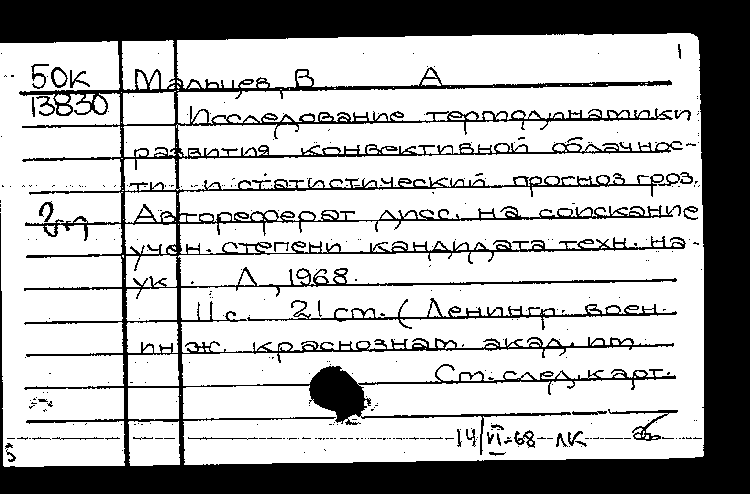 1
50к Мальцев, В А
13830 Исследование термодинамики
развития конвективной облачнос-
ти и статистический прогноз гроз.
Автореферат дисс. на соискание
учен. степени кандидата техн. на-
ук. Л., 1968.
11 с. 21 см. (Ленингр. воен.
инж. краснознам. акад. им.
См. след. карт.
14/VI-68 ЛК
5